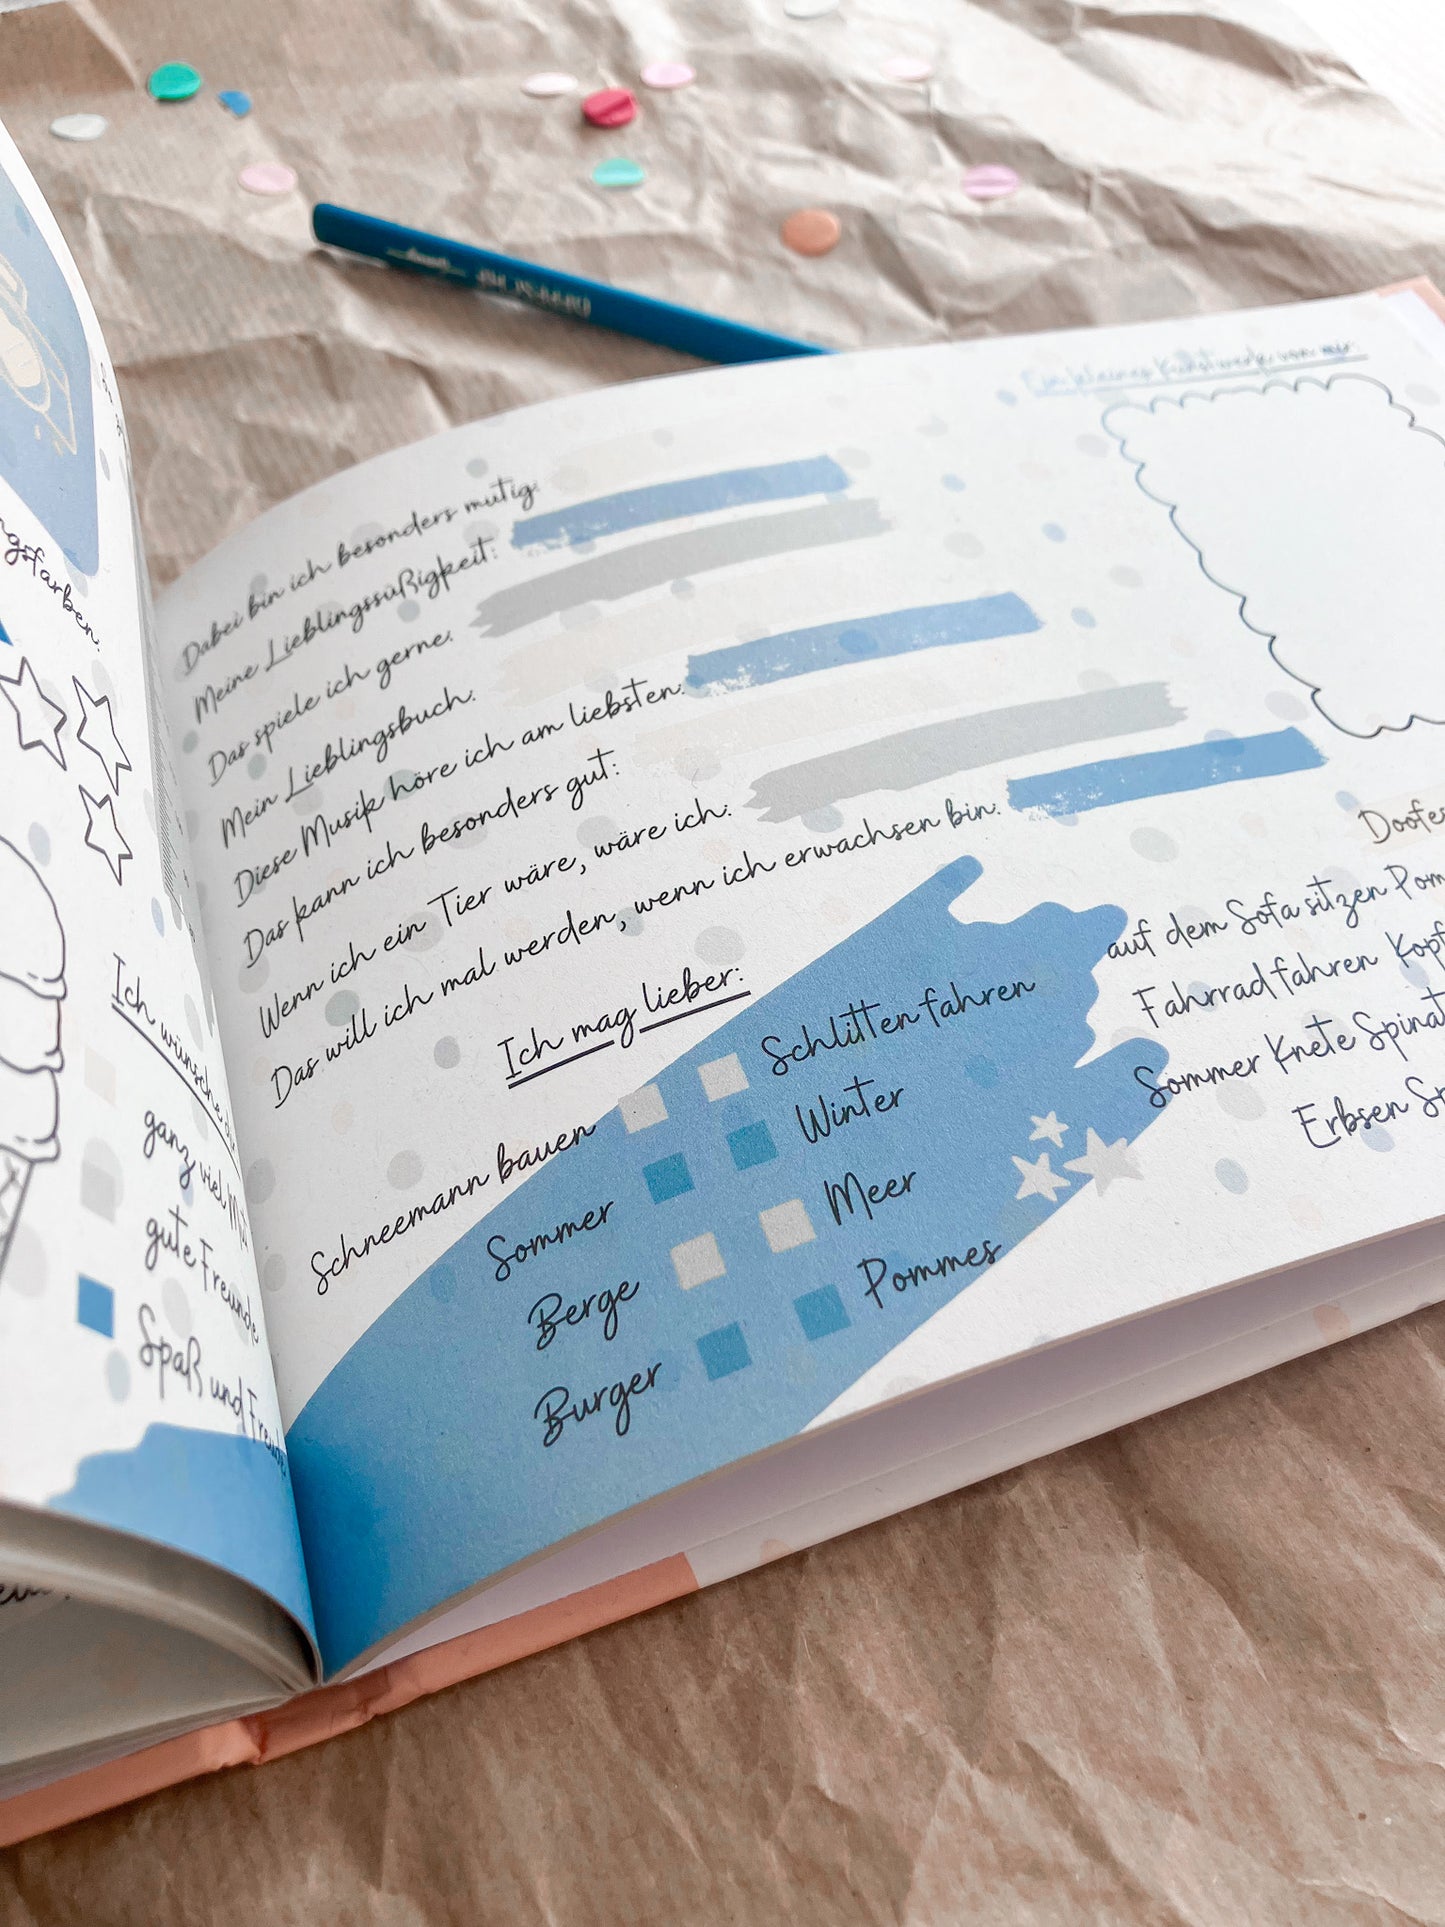 Ein kleines Kunstwerk von mir:
Dabei bin ich besonders mutig:
Meine Lieblingssüßigkeit:
Das spiele ich gerne:
Mein Lieblingsbuch:
Diese Musik höre ich am liebsten:
Das kann ich besonders gut:
Wenn ich ein Tier wäre, wäre ich:
Das will ich mal werden, wenn ich erwachsen bin:
Ich mag lieber:
Schneemann bauen Schlitten fahren
Sommer Winter
Berge Meer
Burger Pommes
auf dem Sofa sitzen
Fahrrad fahren
Sommer Knete Spinat
Erbsen
Ich wünsche dir
ganz viel Mut
gute Freunde
Spaß und